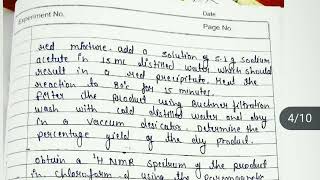 Experiment No.
Date
Page No.
red mixture. add a solution of 5.1 g sodium
acetate in 15 mL distilled water which should
result in a red precipitate. Heat the
reaction to 80°c for 15 minutes.
filter the product using Buchner filtration
wash with cold distilled water and dry
in a vaccum desicator. Determine the
percentage yield of the dry product.
obtain a ¹H NMR Spectrum of the product
in chloroform d using the paramagnetic
4/10